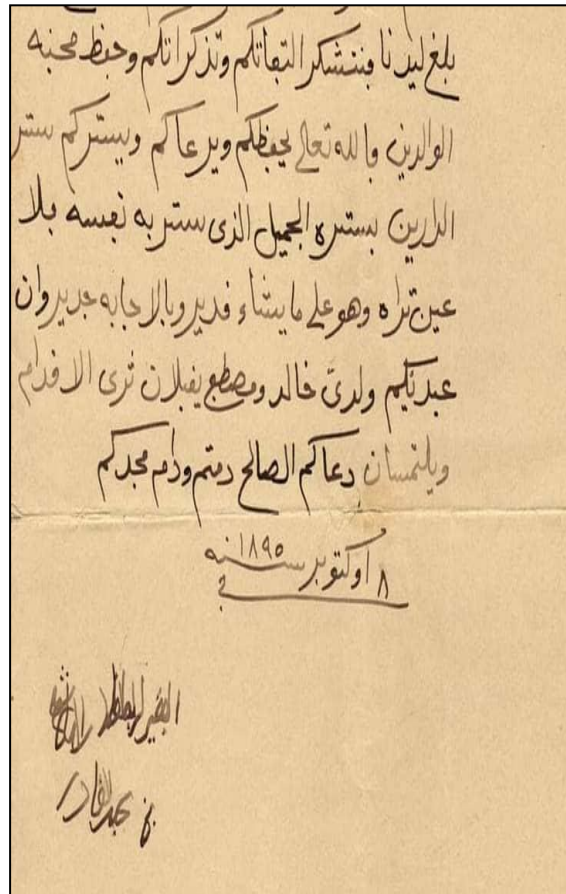 بلغ ليدنا فنتشكر التفاتكم وتذكراتكم وحفظ محبه
الوالدين والله تعالى يحفظكم ويرعاكم ويستركم ستر
الدارين بستره الجميل الذى ستر به نفسه بلا
عين تراه وهو على ما يشاء قدير وبالاجابه جدير وان
عبديكم ولدىّ خالد ومصطفى يقبلان ثرى الاقدام
ويلتمسان دعاكم الصالح دمتم ودام مجدكم
فى ٨ اوكتوبر سنه ١٨٩٥
الفقير
بن عبد القادر